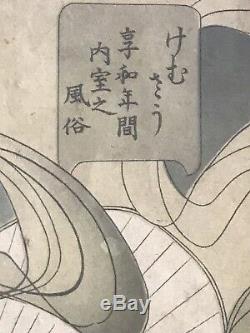 けむさう
享和年間
内室之
風俗
ebay